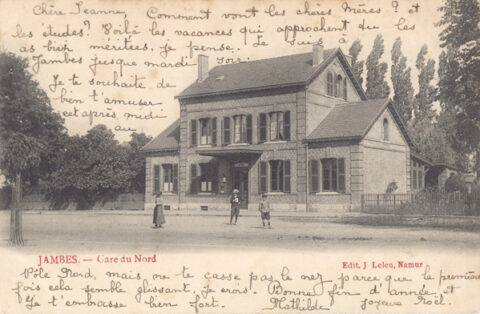 Chère Jeanne, Comment vont les chères Mères ? et
les études? Voilà les vacances qui approchent du les
as bien méritées, je pense. Je suis à
Jambes jusque mardi soir.
Je te souhaite de
bien t'amuser
cet après midi
au
JAMBES. — Gare du Nord
Edit. J. Leleu, Namur
Pôle Nord, mais, ne te casse pas le nez parce que la première
fois cela semble glissant, je crois. Bonne fin d'année et
Je t'embrasse bien fort. Mathilde joyeux Noël.